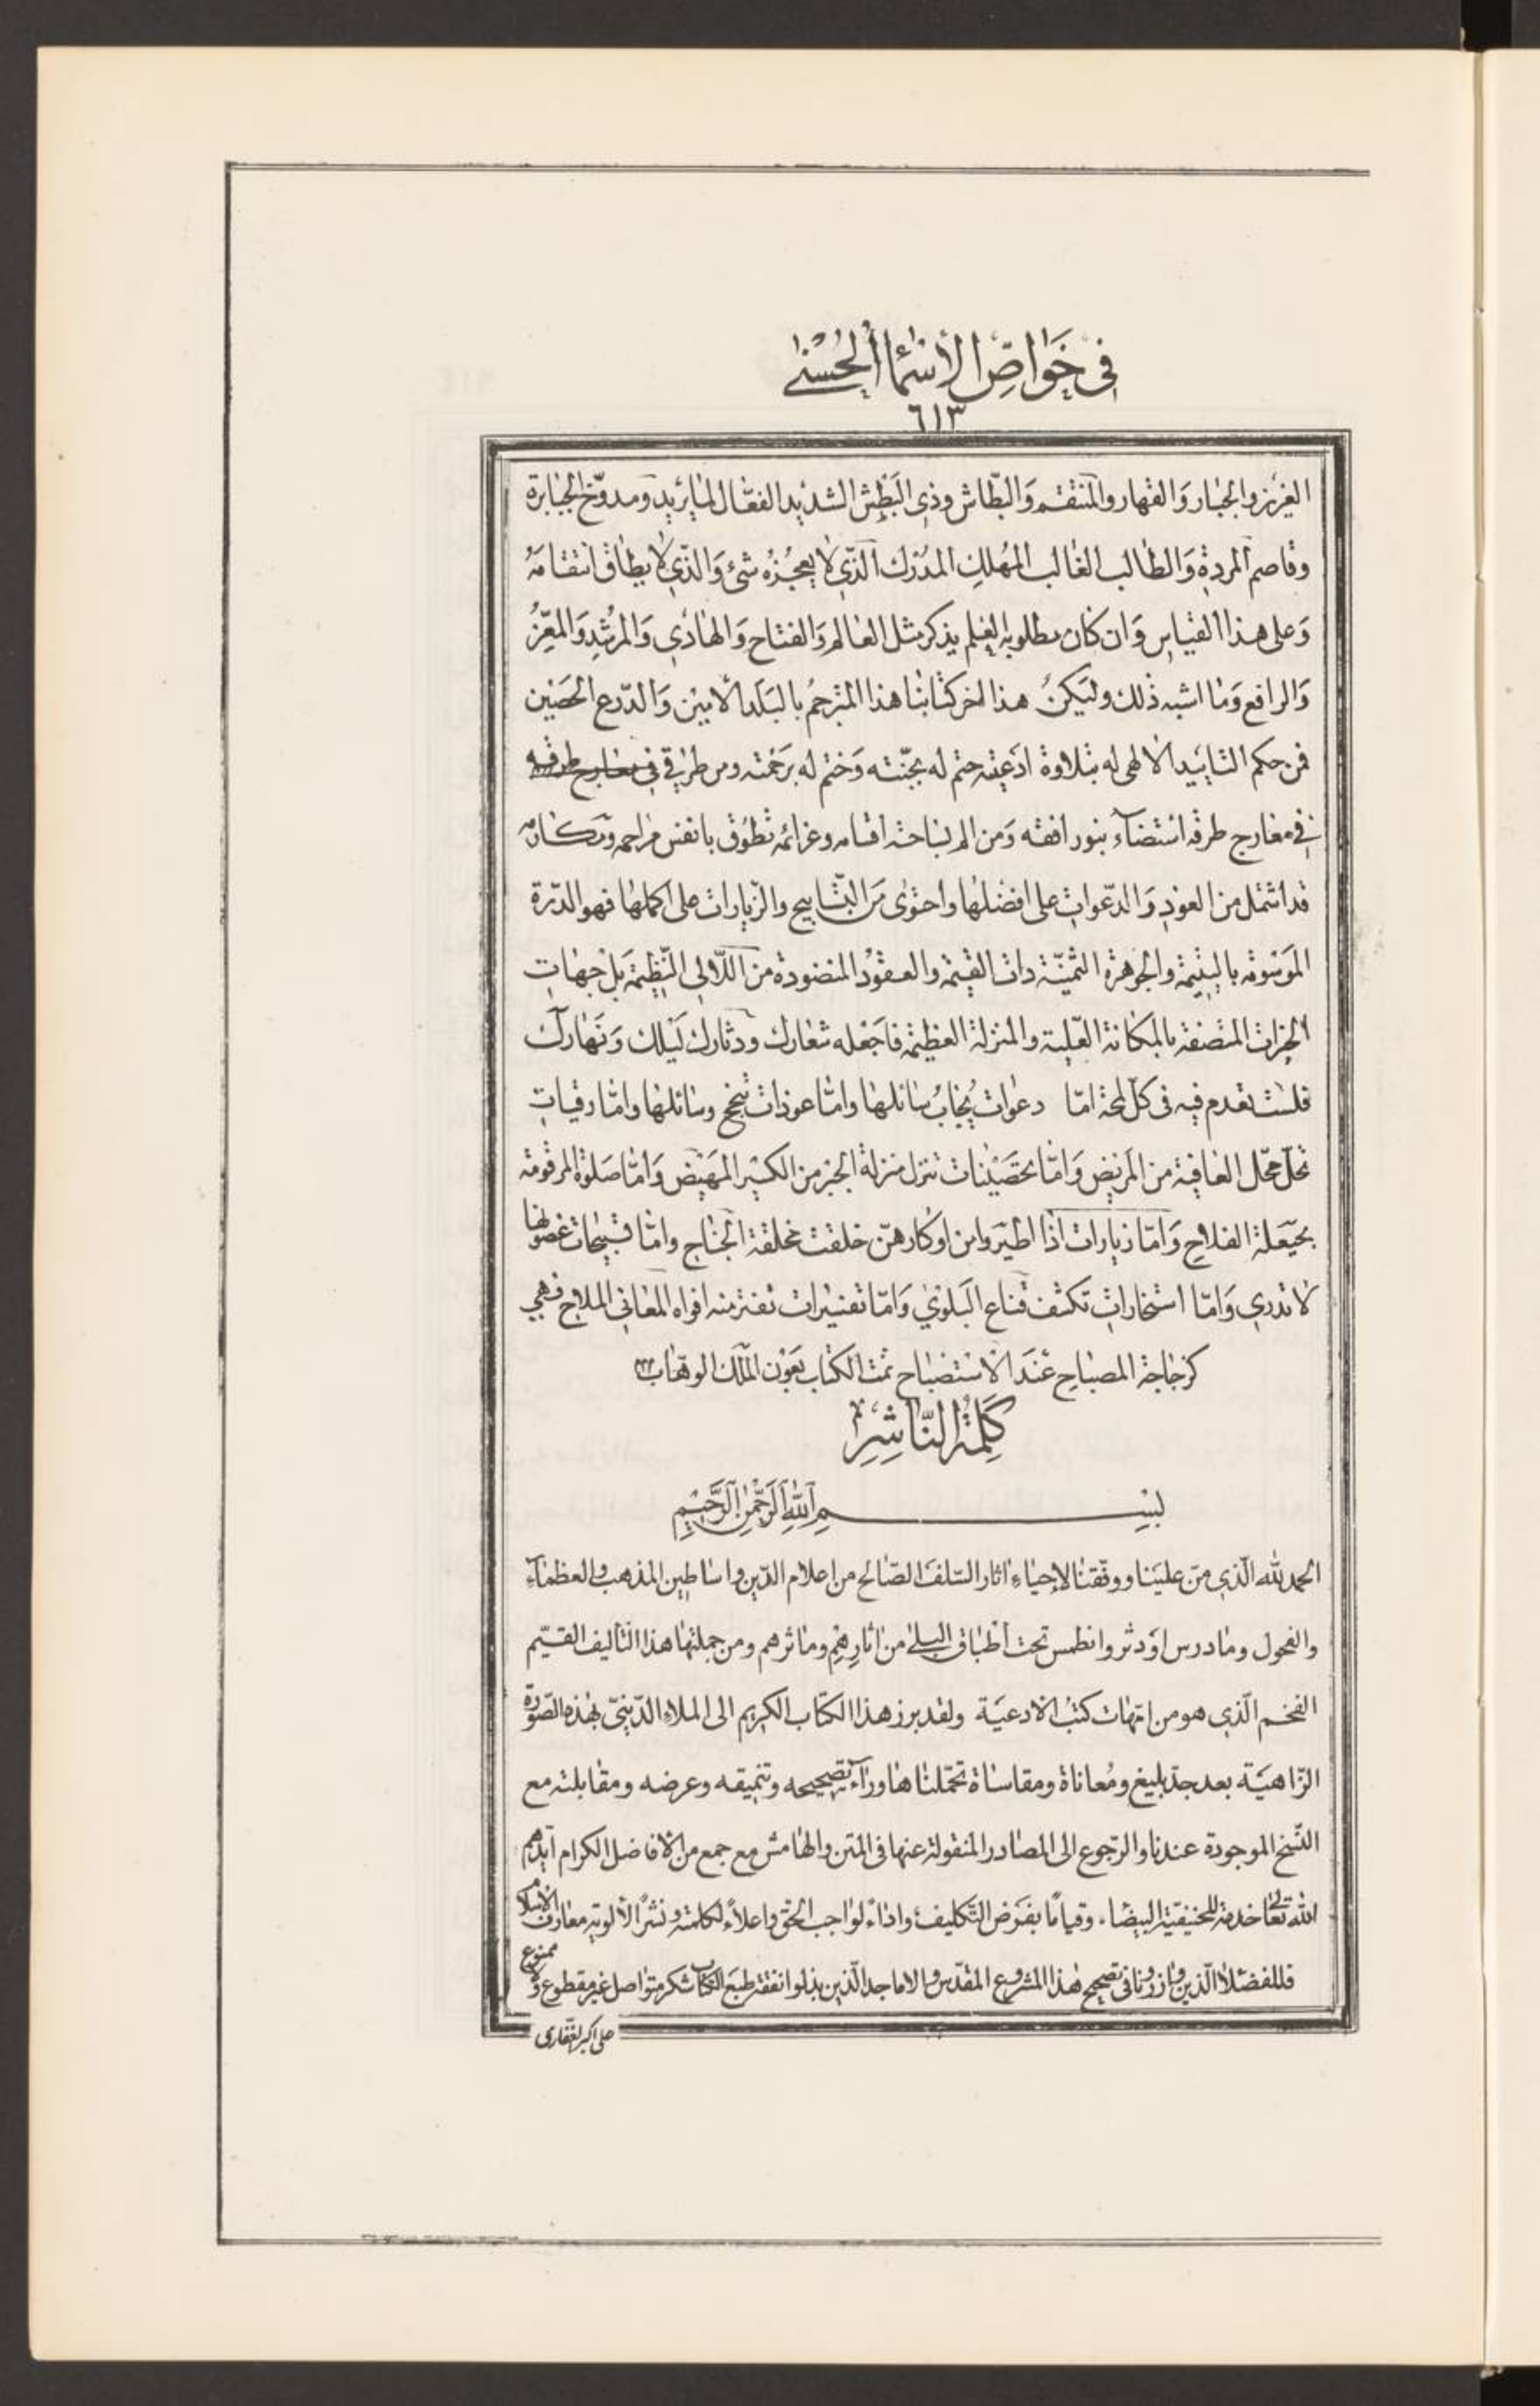 في خَوٰاصِّ الأَسْمٰاءِ الْحُسْنٰى
٦١٣
العزيز والجبار وَالقهار والمنتقم وَالبطّاش وذي البَطْش الشديد الفعّال لما يريد ومدوّخ الجبابرة
وقاصم المردة وَالطالب الغالب المهلك المدرك الّذي لا يعجزه شيء وَالّذي لا يطاق انتقامهُ
وَعلى هذا القياس وَان كان مطلوبه العلم يذكر مثل العالم وَالفتاح وَالهادي وَالمرشد وَالمعزّ
وَالرافع وَما اشبه ذلك وليكنُ هذا اخر كتابنا هذا المترجم بالبَلد الامين وَالدّرع الحصين
فمن حكم التاييد الالهى له بتلاوة ادعيته حتم له بجنّته وَختم له برحمته ومن طرق في معارج طرقه
في معارج طرقه استضاء بنور افقه وَمن الم بساحة اقسامه وعزائمه تطوّق بانفس مراحمه ومكارمه
قد اشتمل من العوذ وَالدّعوات على افضلها واحتوى مَن التسابيح والزّيارات على اكملها فهو الدّرة
المَوسومة باليتيمة والجوهرة الثمينة ذات القيمة والعقود المنضودة من اللّالى النّظيمة بَل جهات
الخيرات المتصفة بالمكانة العَليّة والمنزلة العظيمة فاجعله شعارك ودثارك لَيلك وَنهارك
فلست تعدم فيه في كلّ لمحة امّا دعوات يُجابُ سائلها وامّا عوذات تنجح وسائلها وامّا رقيات
تحلّ محّل العافية من المَريض وَامّا تحصينات تنزل منزلة الجبر من الكسير المَهيض وَامّا صَلوة المرقومة
بحيّعلة الفلاح وَامّا زيارات اذا اطيروا من اوكارهنّ خلقت مخلقة الجناح وامّا تسبيحات غصونها
لا تدري وَامّا استخارات تكشف قناع البَلوى وَامّا تفسيرات تفتر منه افواه المعاني الملاح فهي
كزجاجة المصباح عندَ الاستصباح تمت الكتاب بعَون المَلك الوهّاب
كَلِمَةُ النّٰاشِرِ
بسم اللهِ الرَّحْمٰنِ الرَّحيمِ
الحمد لله الّذي منّ علينا ووفقنا لإحياءِ اثار السّلف الصّالح من اعلام الدّين واساطين المذهب والعظماء
والفحول وما درس او دثر وانطمس تحت أطباق البلى من اثارهم وماثرهم ومن جملتها هذا التاليف القيّم
الفخم الّذي هو من امّهات كتب الادعيَة ولقد برز هذا الكتاب الكريم الى الملاء الدّينىّ بهذه الصّورة
الزّاهية بعد جدّ بليغ ومُعاناة ومقاساة تحمّلناها وراء تصحيحه وتنميقه وعرضه ومقابلته مع
النّسخ الموجودة عندنا والرّجوع الى المصادر المنقولة عنها في المتن والهامش مع جمع من الافاضل الكرام أيّدهم
الله تعالى خدمة للحنيفيّة البيضاء وقيامًا بفَرض التّكليف واداءً لواجب الحقّ واعلاءً لكلمته ونشرًا لألوية معارف الاسلام
فللفضلاء الذين وازرونا في تصحيح هذا المشروع المقدّس والاماجد الّذين بذلوا نفقة طبعَ الكتاب شكر متواصل غير مقطوع ولا ممنوع
على اكبر الغفّارى